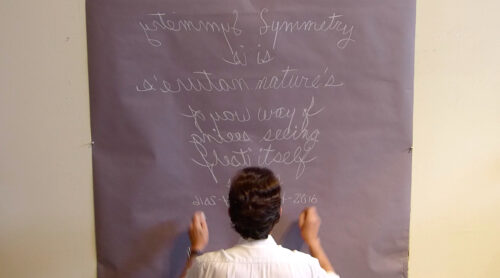 yrtemmyS Symmetry
si is
s'erutan nature's
fo yaw way of
gniees seeing
flesti itself